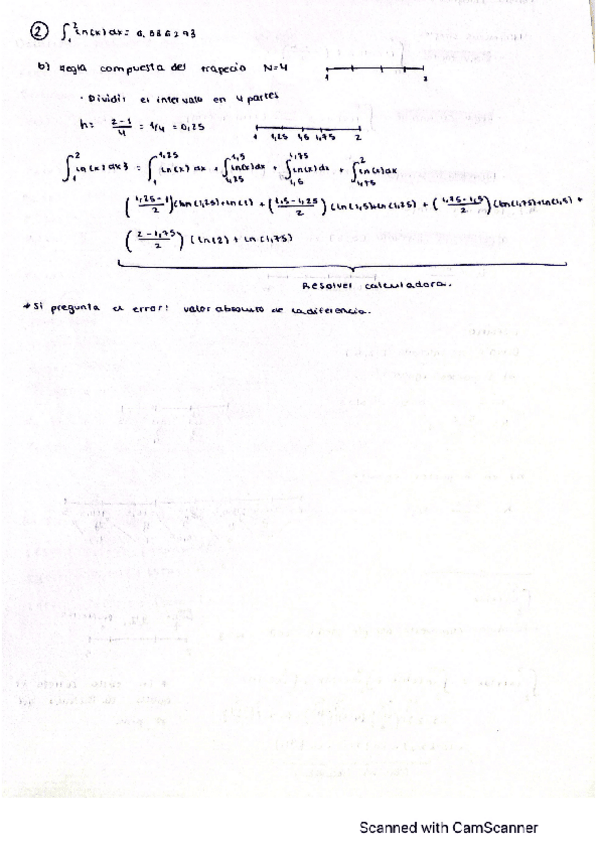 ② ∫₁² ln(x) dx = 0,386293
b) Regla compuesta del trapecio N=4
1 2
· Dividir el intervalo en 4 partes
h = (2-1)/4 = 1/4 = 0,25
1 1,25 1,5 1,75 2
∫₁² ln(x) dx = ∫₁^1,25 ln(x) dx + ∫1,25^1,5 ln(x) dx + ∫1,5^1,75 ln(x) dx + ∫1,75^2 ln(x) dx
((1,25-1)/2)(ln(1,25)+ln(1)) + ((1,5-1,25)/2)(ln(1,5)+ln(1,25)) + ((1,75-1,5)/2)(ln(1,75)+ln(1,5) +
((2-1,75)/2)(ln(2) + ln(1,75))
Resolver calculadora.
* Si pregunta el error: valor absoluto de la diferencia.
Scanned with CamScanner